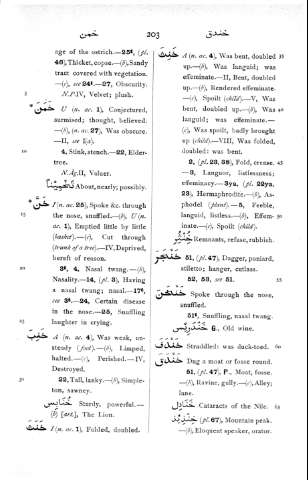 خمن 203 خندق
age of the ostrich.—25t, (pl.
46), Thicket, copse.—(b), Sandy
tract covered with vegetation.
—(c), see 24t.—27, Obscurity.
N.P.IV, Velvet; plush.
خَمَنَ U (n. ac. 1), Conjectured,
surmised; thought, believed.
—(b), (n. ac. 27), Was obscure.
—II, see I(a).
4, Stink, stench.—22, Elder-
tree.
N.Ag.II, Valuer.
تَخْمِيْنًا About, nearly; possibly.
خَنَّ I (n. ac. 25), Spoke &c. through
the nose, snuffled.—(b), U (n.
ac. 1), Emptied little by little
(basket).—(c), Cut through
(trunk of a tree).—IV, Deprived,
bereft of reason.
3t, 4, Nasal twang.—(b),
Nasality.—14, (pl. 8), Having
a nasal twang; nasal.—17t,
see 3t.—24, Certain disease
in the nose.—25, Snuffling
laughter in crying.
A (n. ac. 4), Was weak, un-
steady (foot).—(b), Limped,
halted.—(c), Perished.—IV,
Destroyed.
22, Tall, lanky.—(b), Simple-
ton, sawney.
Sturdy, powerful.—
(b) [art.], The Lion.
خَنَثَ I (n. ac. 1), Folded, doubled.
خَنِثَ A (n. ac. 4), Was bent, doubled 35
up.—(b), Was languid; was
effeminate.—II, Bent, doubled
up.—(b), Rendered effeminate.
—(c), Spoilt (child).—V, Was
bent, doubled up.—(b), Was 40
languid; was effeminate.—
(c), Was spoilt, badly brought
up (child).—VIII, Was folded,
doubled: was bent.
2, (pl. 23, 38), Fold, crease. 45
—3, Languor, listlessness;
effeminacy.—3ya, (pl. 22ya,
23), Hermaphrodite.—(b), As-
phodel (plant).—5, Feeble,
languid, listless.—(b), Effem- 50
inate.—(c), Spoilt (child).
Remnants, refuse, rubbish.
خَنْجَر 51, (pl. 47), Dagger, poniard,
stiletto; hanger, cutlass.
52, 53, see 51. 55
Spoke through the nose,
snuffled.
51t, Snuffling, nasal twang.
خَنْدَرِيْس 6, Old wine.
Straddled: was duck-toed. 60
خَنْدَقَ Dug a moat or fosse round.
51, (pl. 47), P., Moat, fosse.
—(b), Ravine, gully.—(c), Alley;
lane.
Cataracts of the Nile. 65
خِنْذِيْذ (pl. 67), Mountain peak.
—(b), Eloquent speaker, orator.